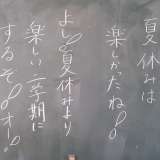 夏休みは
楽しかったね!
よし!夏休みより
楽しい二学期に
するぞ!オー!